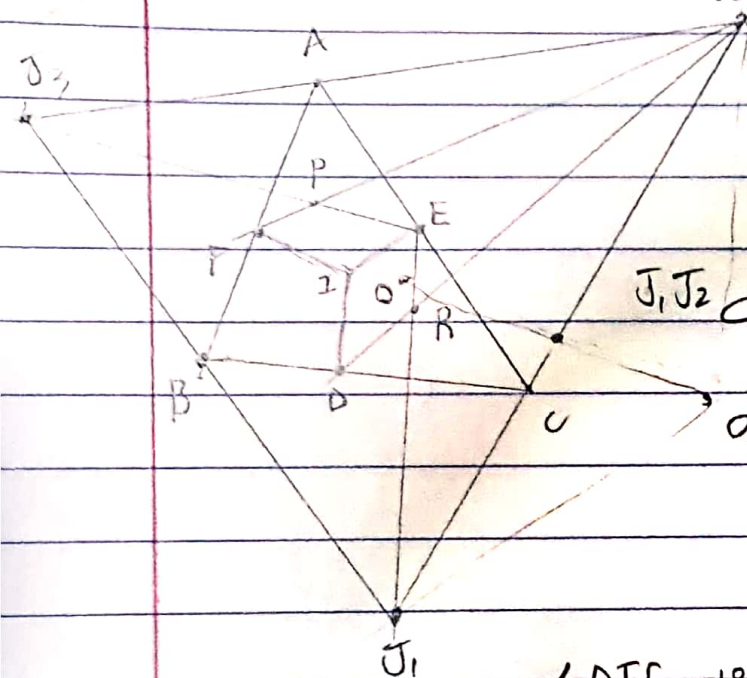 A
J₃
P
E
F
I
O
R
J₁J₂
B
D
C
J₁